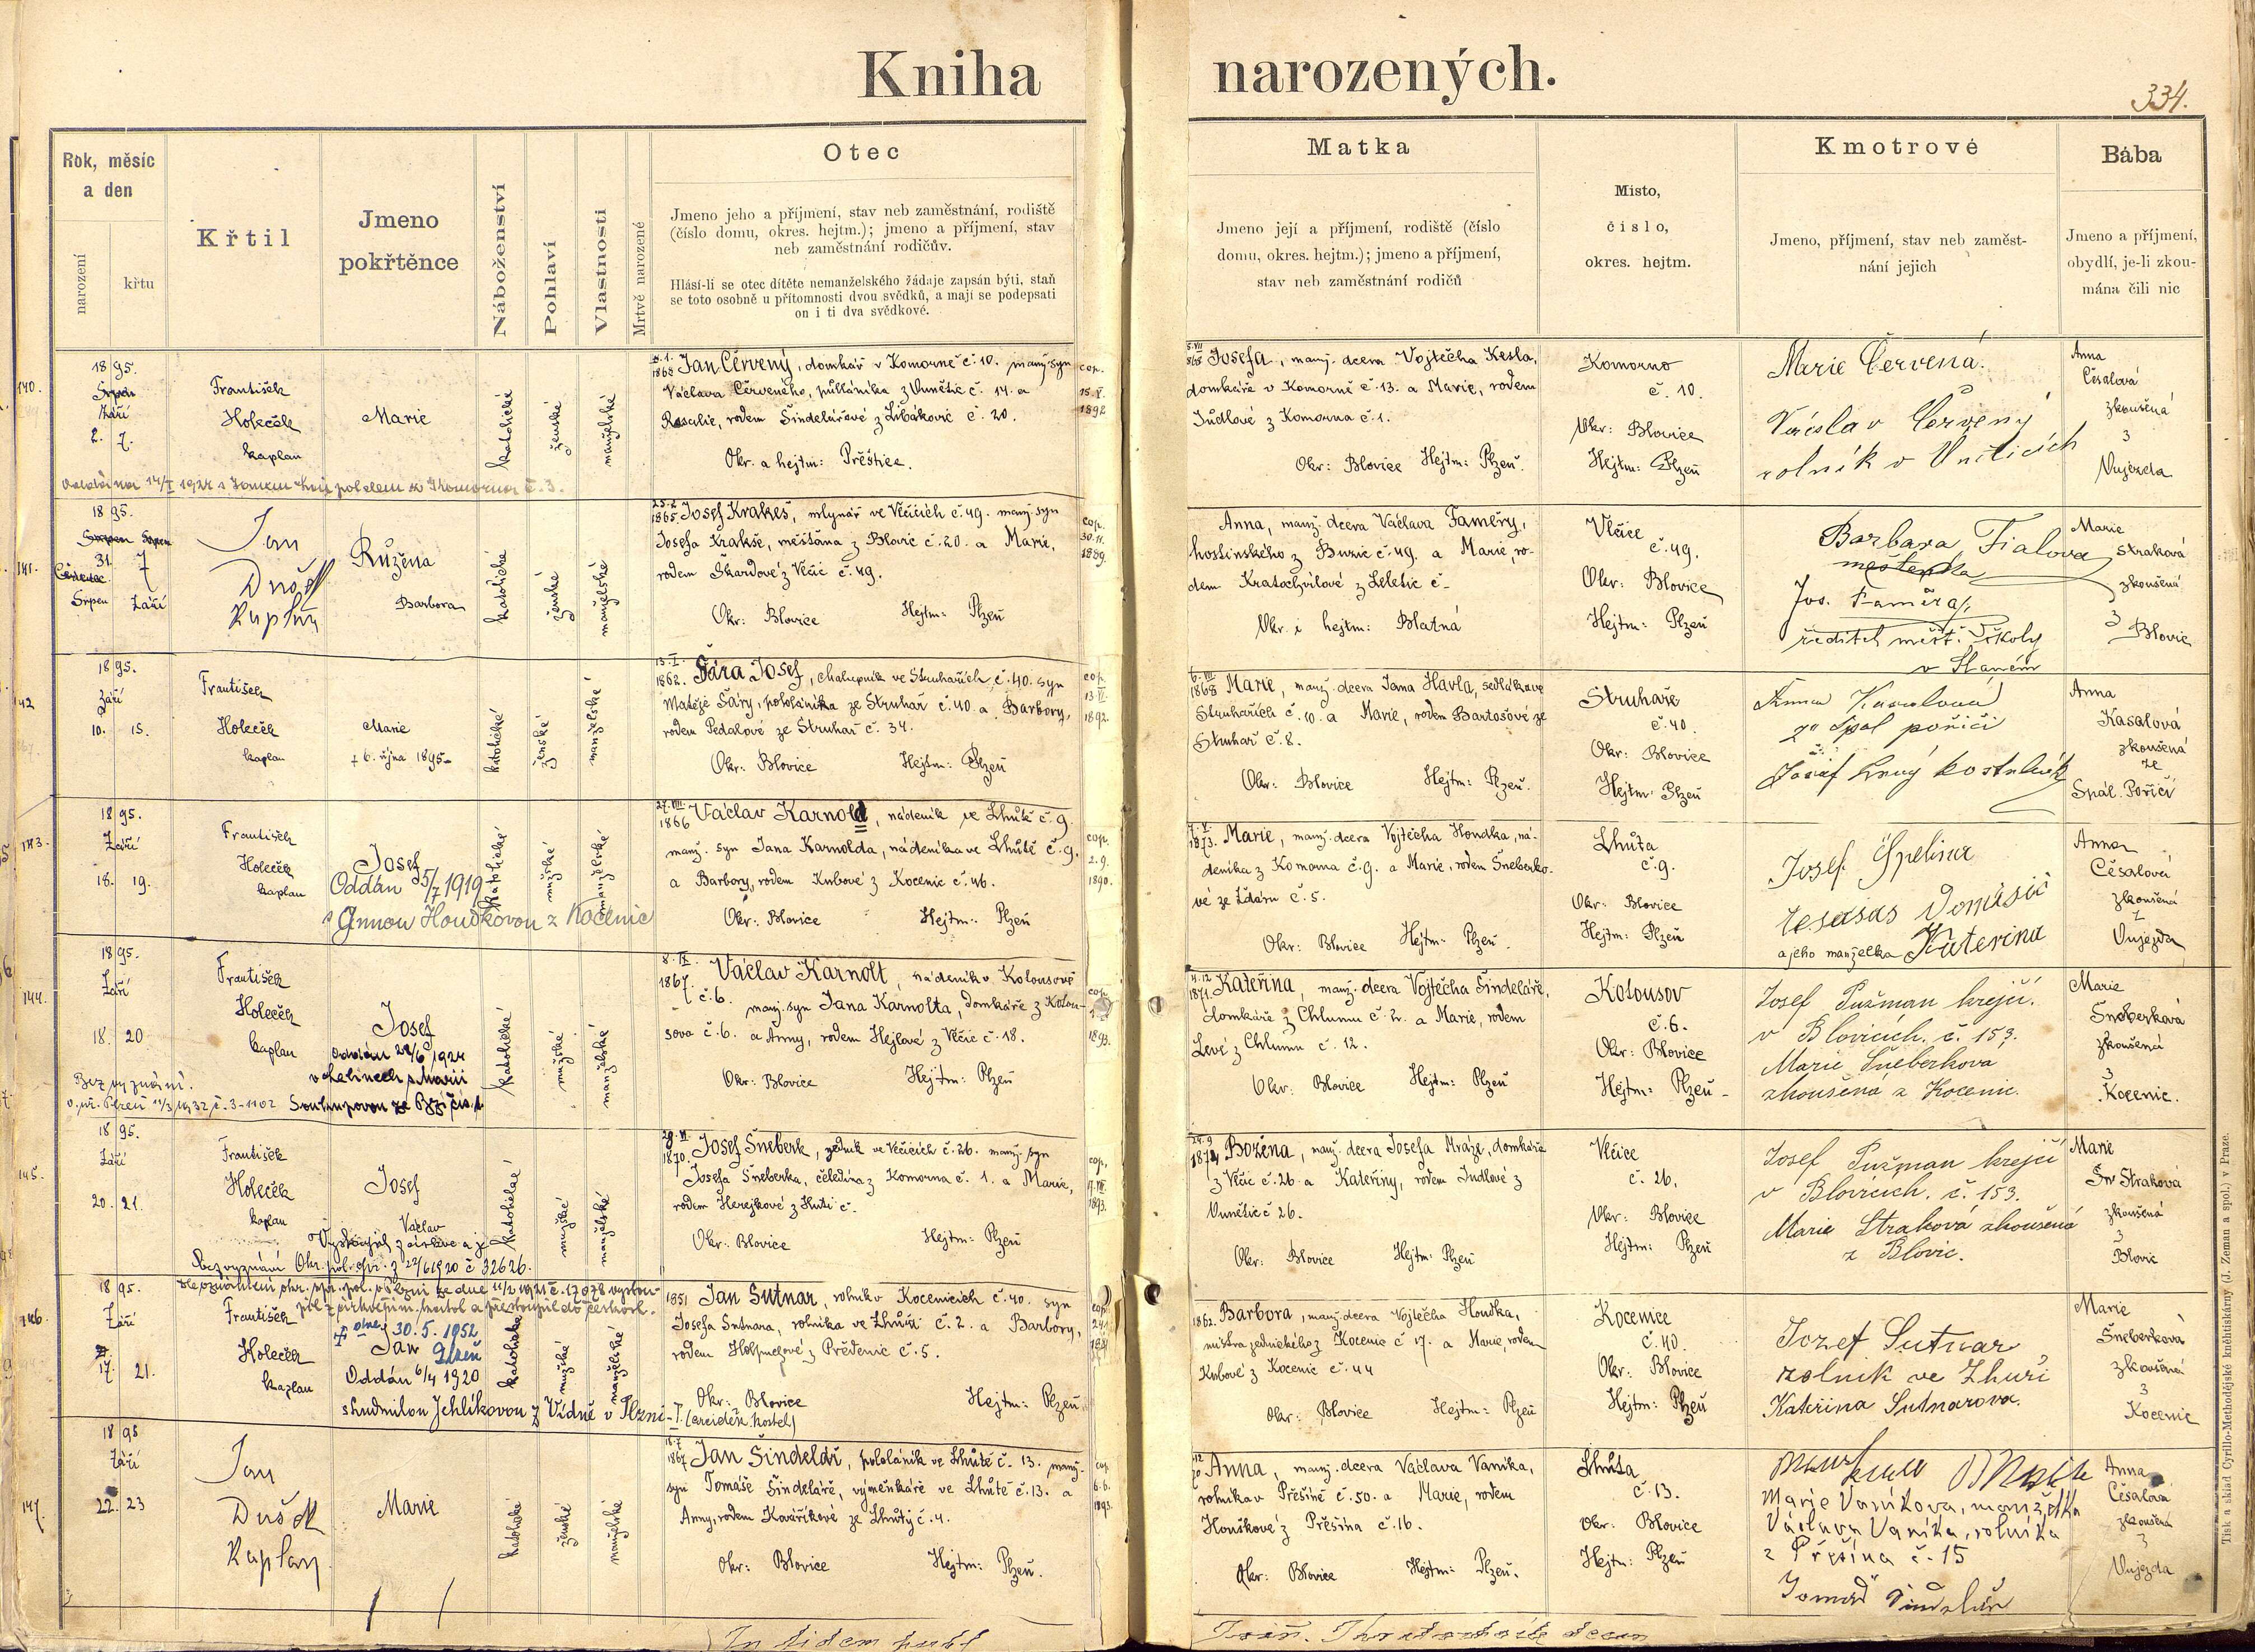 Kniha narozených.
334.
Rok, měsíc
a den
narození
křtu
Křtil
Jmeno
pokřtěnce
Náboženství
Pohlaví
Vlastnosti
Mrtvě narozené
Otec
Jmeno jeho a příjmení, stav neb zaměstnání, rodiště
(číslo domu, okres. hejtm.); jmeno a příjmení, stav
neb zaměstnání rodičův.
Hlásí-li se otec dítěte nemanželského žádaje zapsán býti, staň
se toto osobně u přítomnosti dvou svědků, a mají se podepsati
on i ti dva svědkové.
Matka
Jmeno její a příjmení, rodiště (číslo
domu, okres. hejtm.); jmeno a příjmení,
stav neb zaměstnání rodičů
Misto,
čislo,
okres. hejtm.
Kmotrové
Jmeno, příjmení, stav neb zaměst-
nání jejich
Bába
Jmeno a příjmení,
obydlí, je-li zkou-
mána čili nic
140.
1895.
Srpen
Září
2. 7.
František
Holeček
kaplan
Marie
katolické
ženské
manželské
1868 Jan Červený, domkář v Komorně č. 10. manž. syn
Václava Červeného, půlláníka z Vunětic č. 14. a
Rosalie, rodem Šindelářové z Libákovic č. 20.
Okr. a hejtm: Přeštice.
cop.
15. V.
1892
Josefa, manž. dcera Vojtěcha Kesla,
domkáře v Komorně č. 13. a Marie, rodem
Judlové z Komorna č. 1.
Okr: Blovice Hejtm: Plzeň.
Komorno
č. 10.
Okr: Blovice
Hejtm: Plzeň
Marie Červená.
Václav Červený
rolník v Vněticích
Anna
Česalová
zkoušená
z
Vujezda
141.
1895.
31. 7
Srpen Září
Jan
Dušek
Kaplan
Růžena
Barbora
katolické
ženské
manželské
1865. Josef Krakeš, mlynář ve Vlčicích č. 49. manž. syn
Josefa Krakše, měšťana z Blovic č. 20. a Marie,
rodem Škardové z Vlčic č. 49.
Okr: Blovice Hejtm: Plzeň
cop.
30. 11.
1889.
Anna, manž. dcera Václava Faměry,
hostinského z Buzic č. 49. a Marie, ro-
dem Kratochvilové z Leletic č –
Okr. i hejtm: Blatná
Vlčice
č. 49.
Okr: Blovice
Hejtm: Plzeň
Barbara Fialova
měšťanka
Jos. Faměra,
ředitel měšť. školy
v Slaném
Marie
Straková
zkoušená
z Blovic
142
1895.
Září
10. 15.
František
Holeček
kaplan
Marie
† 6. října 1895
katolické
ženské
manželské
1862. Šára Josef, chalupník ve Struhařích č. 40. syn
Matěje Šáry, pololáníka ze Struhař č. 40 a Barbory,
rodem Pedalové ze Struhař č. 34.
Okr: Blovice Hejtm: Plzeň
cop.
1892.
1868 Marie, manž. dcera Jana Havla, sedláka ve
Struhařích č. 10. a Marie, rodem Bartošové ze
Struhař č. 8.
Okr: Blovice Hejtm: Plzeň.
Struhaře
č. 40.
Okr: Blovice
Hejtm: Plzeň
Anna Kasalová
ze Spál poříčí
Anna
Kasalová
zkoušená
ze
Spál. Poříčí
143.
1895.
Září
18. 19.
František
Holeček
kaplan
Josef
Oddán 5/7 1919
s Annou Houdkovou z Kocenic
katolické
mužské
manželské
27. VIII.
1866 Václav Karnold, nádeník ve Lhůtě č. 9.
manž. syn Jana Karnolda, nádeníka ve Lhůtě č. 9.
a Barbory, rodem Kubové z Kocenic č. 46.
Okr: Blovice Hejtm: Plzeň
cop.
2. 9.
1890.
1873. Marie, manž. dcera Vojtěcha Houdka, ná-
deníka z Komorna č. 9. a Marie, rodem Šneberko-
vé ze Ždáru č. 5.
Okr: Blovice Hejtm: Plzeň.
Lhůta
č. 9.
Okr: Blovice
Hejtm: Plzeň
Josef Špelina
a jeho manželka Kateřina
Anna
Česalová
zkoušená
z
Vujezda
144.
1895.
Září
18. 20
František
Holeček
kaplan
Josef
Oddán 22/6 1924
Bez vyznání.
katolické
mužské
manželské
8. IX.
1867. Václav Karnolt, nádeník v Kotousově
č. 6. manž. syn Jana Karnolta, domkáře z Kotou-
sova č. 6. a Anny, rodem Hejlové z Vlčic č. 18.
Okr: Blovice Hejtm: Plzeň
cop.
1893.
4. 12
1871. Kateřina, manž. dcera Vojtěcha Šindeláře,
domkáře z Chlumu č. 2. a Marie, rodem
Levé z Chlumu č. 12.
Okr: Blovice Hejtm: Plzeň
Kotousov
č. 6.
Okr: Blovice
Hejtm: Plzeň
Josef Pužman krejčí.
v Blovicích. č. 153.
Marie Šneberkova
zkoušená z Kocenic.
Marie
Šneberková
zkoušená
z
Kocenic.
145.
1895.
Září
20. 21.
František
Holeček
kaplan
Josef
Václav
katolické
mužské
manželské
1870. Josef Šneberk, zedník ve Vlčicích č. 26. manž. syn
Josefa Šneberka, čeledína z Komorna č. 1. a Marie,
rodem Herejkové z Huti č. –
Okr: Blovice Hejtm: Plzeň
cop.
1893.
24. 9
1874 Božena, manž. dcera Josefa Mráze, domkáře
z Vlčic č. 26 a Kateřiny, rodem Judlové z
Vunětic č 26.
Okr: Blovice Hejtm: Plzeň
Vlčice
č. 26.
Okr: Blovice
Hejtm: Plzeň
Josef Pužman krejčí
v Blovicích. č. 153.
Marie Straková zkoušená
z Blovic.
Marie
Straková
zkoušená
z
Blovic
146.
1895.
Září
17. 21.
František
Holeček
kaplan
† dne 30. 5. 1952
Jan Plzeň
Oddán 6/4 1920
s Ludmilou Jehlíkovou z Vídně v Plzni - I. (arciděk. kostel)
katolické
mužské
manželské
1851 Jan Sutnar, rolník v Kocenicích č. 40. syn
Josefa Sutnara, rolníka ve Zhůři č. 2. a Barbory,
rodem Holpuchové z Předenic č. 5.
Okr: Blovice Hejtm: Plzeň
cop.
1862. Barbora, manž. dcera Vojtěcha Houdka,
mistra zednického z Kocenic č 17. a Marie, rodem
Kubové z Kocenic č. 44
Okr: Blovice Hejtm: Plzeň
Kocenice
č. 40.
Okr: Blovice
Hejtm: Plzeň
Jozef Sutnar
rolnik ve Zhuři
Kateřina Sutnarova.
Marie
Šneberková
zkoušená
z
Kocenic
147.
1895
Září
22. 23
Jan
Dušek
Kaplan
Marie
katolické
ženské
manželské
1867 Jan Šindelář, pololáník ve Lhůtě č. 13. manž.
syn Tomáše Šindeláře, výměnkáře ve Lhůtě č. 13. a
Anny, rodem Kovaříkové ze Lhůty č. 4.
Okr: Blovice Hejtm: Plzeň.
cop.
6. 6.
1893.
Anna, manž. dcera Václava Vaníka,
rolníka v Přešíně č. 50. a Marie, rodem
Houškové z Přešína č. 16.
Okr: Blovice Hejtm: Plzeň.
Lhůta
č. 13.
Okr: Blovice
Hejtm: Plzeň
Marie Vaníkova, manželka
Václava Vaníka, rolníka
z Přešína č. 15
Tomáš Šindelář
Anna
Česalová
zkoušená
z
Vujezda
Tisk a sklad Cyrillo-Methodějské knihtiskárny (J. Zeman a spol.) v Praze.